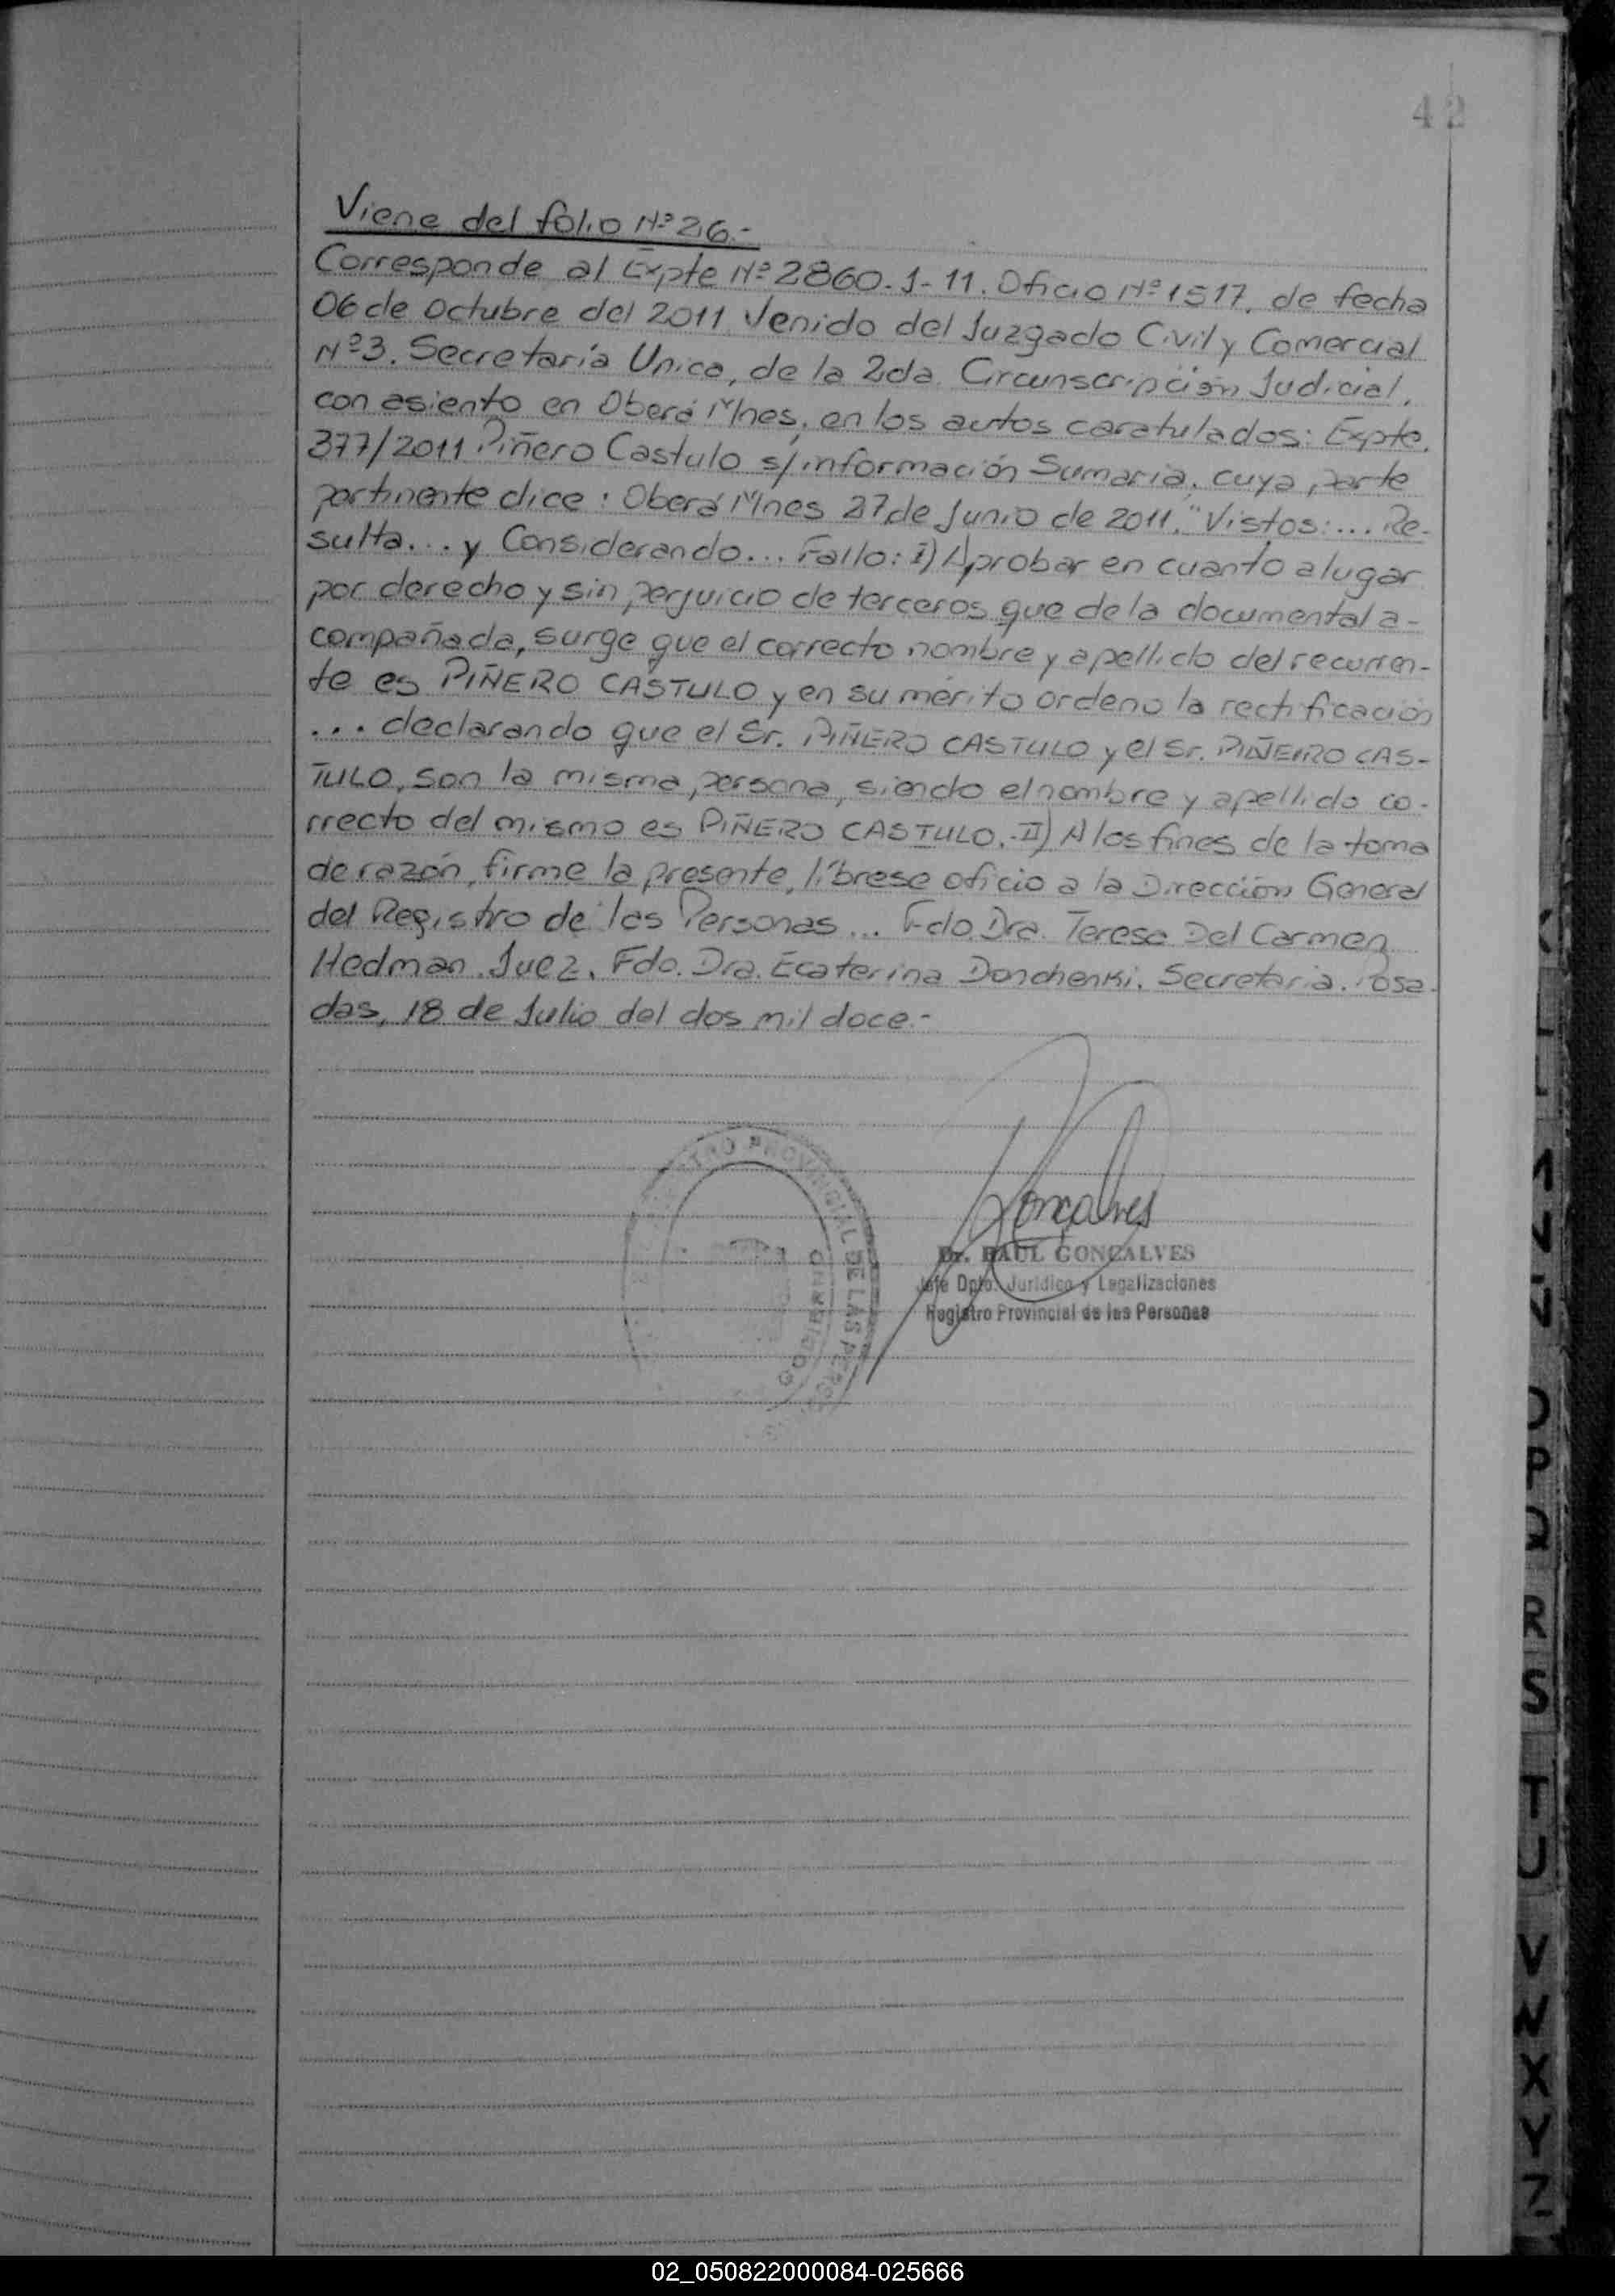 42
Viene del folio Nº 26.-
Corresponde al Expte Nº 2860-J-11. Oficio Nº 1517, de fecha
06 de Octubre del 2011 Venido del Juzgado Civil y Comercial
Nº 3. Secretaría Unica, de la 2da. Circunscripción Judicial,
con asiento en Oberá Mnes, en los autos caratulados: Expte.
377/2011 Piñero Castulo s/información Sumaria, cuya parte
pertinente dice: Oberá Mnes 27 de Junio de 2011. "Vistos:... Re-
sulta... y Considerando... Fallo: I) Aprobar en cuanto a lugar
por derecho y sin perjuicio de terceros que de la documental a-
compañada, surge que el correcto nombre y apellido del recurren-
te es PIÑERO CASTULO y en su mérito ordeno la rectificación
... declarando que el Sr. PIÑERO CASTULO y el Sr. PIÑEIRO CAS-
TULO, son la misma persona, siendo el nombre y apellido co-
rrecto del mismo es PIÑERO CASTULO.-II) A los fines de la toma
de razón, firme la presente, líbrese oficio a la Dirección General
del Registro de las Personas... Fdo. Dra. Teresa Del Carmen
Hedman. Juez. Fdo. Dra. Ecaterina Donchenki. Secretaria. Posa-
das, 18 de Julio del dos mil doce.-
PROVINCIAL DE LAS
GOBIERNO
Goncalves
Dr. RAUL GONCALVES
Jefe Dpto. Jurídico y Legalizaciones
Registro Provincial de las Personas
O
P
Q
R
S
T
U
V
W
X
Y
Z
02_050822000084-025666